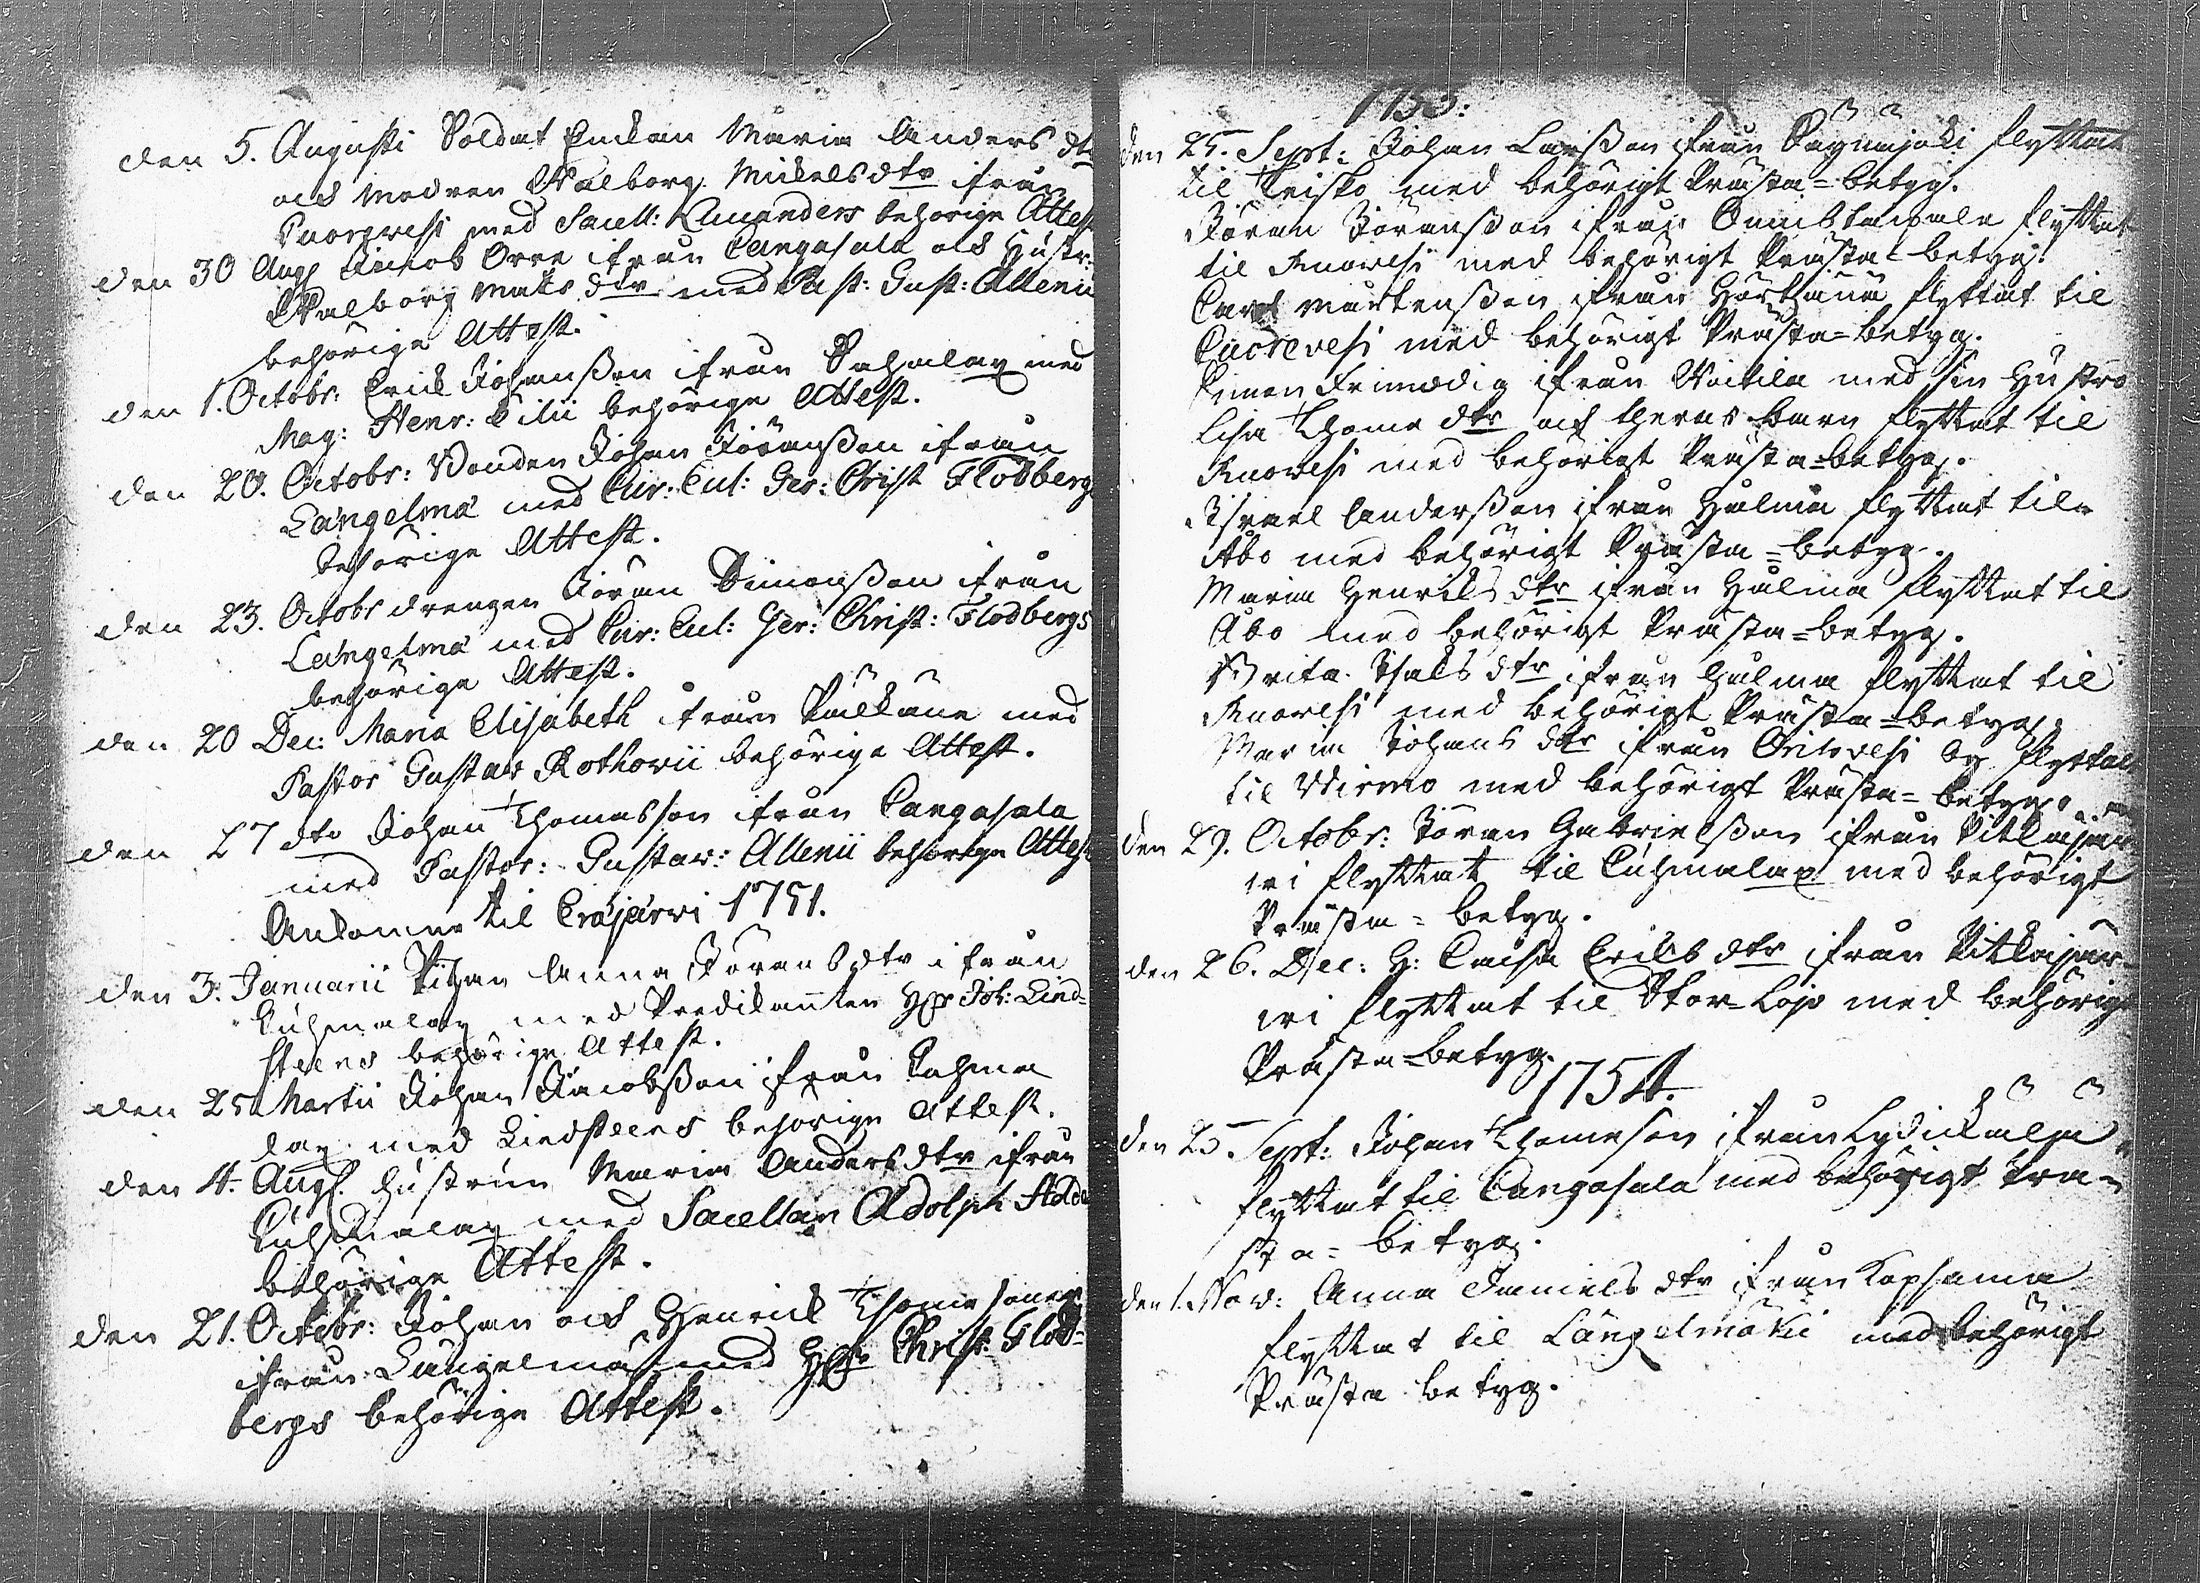 den 5. Augusti Soldat Enckan Maria Anders dtr
och modren Walborg Mickelsdtr ifrån
Ruovesi med Sacell: behörige Attest
den 30 Aug Jacob Orre ifrån Cangasala och Hustr:
Walborg Mats dtr med Past: Gust: Allenii
behörige Attest.
den 1. Octobr: Erick Johansson ifrån Sahmalax med
Mag: Henr: Lilii behörige Attest.
den 20. Octobr: Bonden Johan Jöransson ifrån
Längelmä med Cur: Cul: Ger: Christ Flodbergs
behörige Attest.
den 23. Octobr drengen Jöran Simonsson ifrån
Längelmä med Cur: Cul: Ger: Christ: Flodbergs
behörige Attest.
den 20 Dec: Maria Elisabeth ifrån Pälkäne med
Pastor Gustav Rothovii behörige Attest.
den 27 dto Johan Thomasson ifrån Cangasala
med Pastor: Gustav: Allenii behörige Attest
Ankomne til Eräjärvi 1751.
den 3. Januarii Pigan Anna Jörans dtr ifrån
Kuhmalax med Predikanten Hr Joh: Lind-
steens behörige Attest.
den 25 Martii Johan Jacobsson ifrån Kuhma
lax med Lindsteens behörige Attest.
den 4. Augs. Hustrun Maria Anders dtr ifrån
Kuhmalax med Sacellan Adolph
behörige Attest.
den 21. Octobr: Johan och Henrick Thomesöner
ifrån Längelmä med Hr Christ: Flod-
bergs behörige Attest.
1753:
den 25. Sept: Johan Larsson ifrån Säynäjoki flyttat
til med behörigt Prästa-betyg.
Jöran Jöransson ifrån flyttat
til Ruovesi med behörigt Prästa-betyg.
Carl Mårtensson ifrån flyttat til
Ruovesi med behörigt Prästa-betyg.
Simon Frimodig ifrån Uitila med sin Hustro
Lisa Thome dtr och theras barn flyttat til
Ruovesi med behörigt Prästa-betyg.
Israel Andersson ifrån Hulma flyttat til
Åbo med behörigt Prästa-betyg.
Maria Henricks dtr ifrån Hulma flyttat til
Åbo med behörigt Prästa-betyg.
Brita Isaks dtr ifrån Hulma flyttat til
Ruovesi med behörigt Prästa-betyg.
Maria Johans dtr ifrån Orihvesi by flyttat
til Wirmo med behörigt Prästa-betyg.
den 29. Octobr: Jöran Gabrielsson ifrån Pitkäjär
wi flyttat til Kuhmalax med behörigt
Prästa-betyg.
den 26. Dec: H: Caisa Ericks dtr ifrån Pitkäjär-
wi flyttat til Stor-Lojo med behörigt
Prästa-betyg.
1754.
den 25. Sept: Johan Thomeson ifrån
flyttat til Cangasala med behörigt Prä-
sta-betyg.
den 1. Nov: Anna Daniels dtr ifrån Kopsama
flyttat til Längelmäki med behörigt
Prästa betyg.